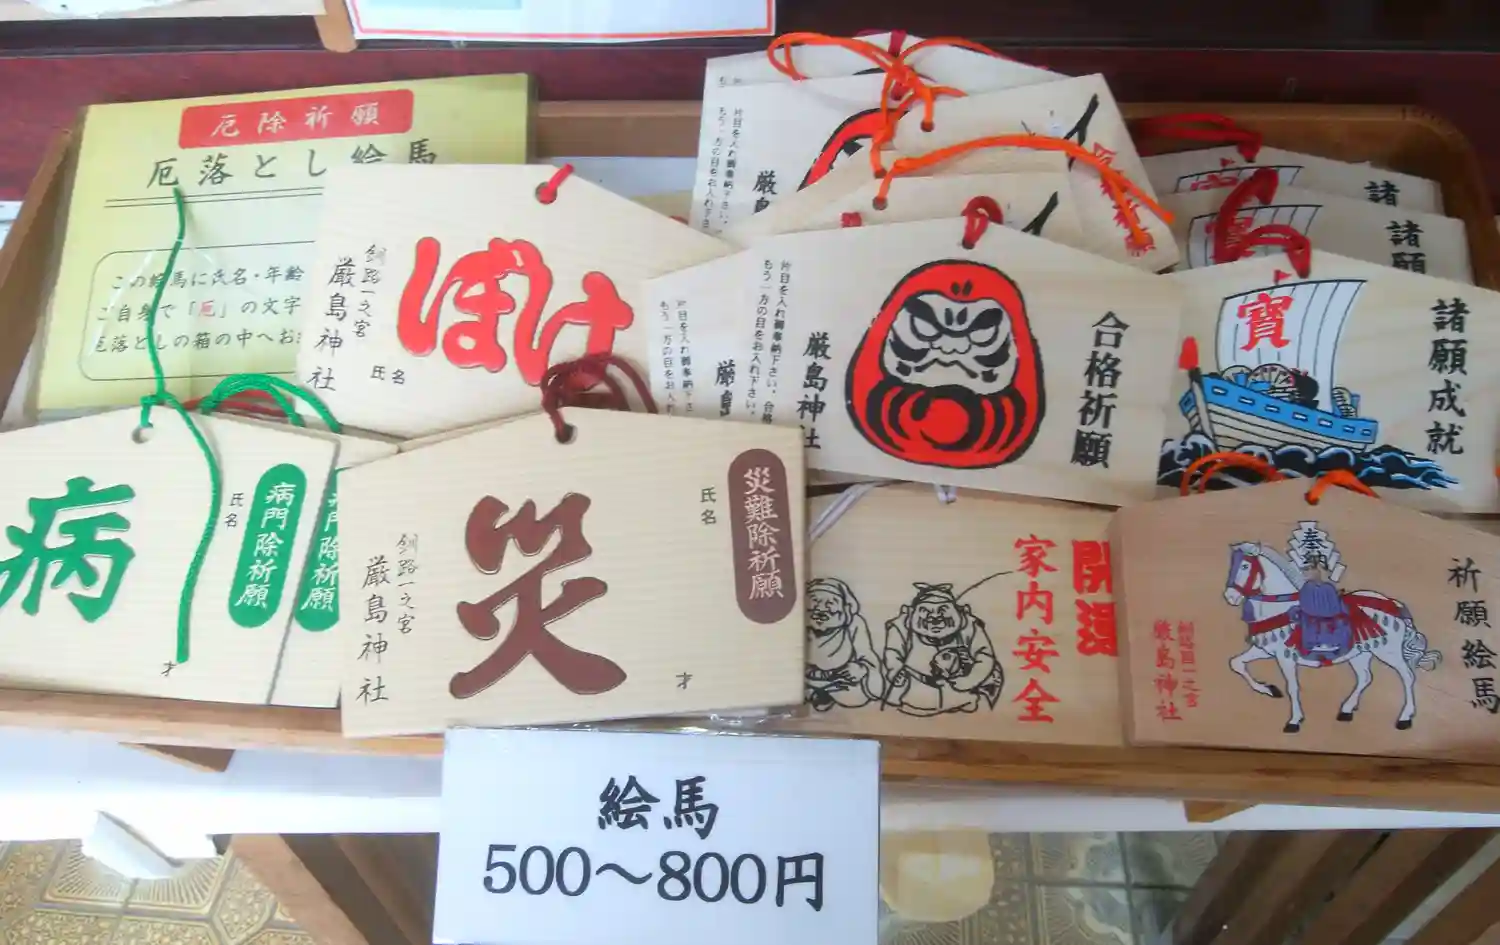 厄除祈願
厄落とし絵馬
この絵馬に氏名・年齢
ご自身で「厄」の文字
厄落としの箱の中へお
ぼけ
釧路一之宮
厳島神社
氏名
病
病門除祈願
氏名
才
病門除祈願
災
災難除祈願
氏名
才
釧路一之宮
厳島神社
片目を入れ御奉納下さい。
もう一方の目をお入れ下さい。
厳島
祈願
片目を入れ御奉納下さい。
もう一方の目をお入れ下さい。
厳島
片目を入れ御奉納下さい。合格
もう一方の目をお入れ下さい。
厳島神社
合格祈願
諸
諸願
寶
諸願成就
開運
家内安全
奉納
祈願絵馬
釧路國一之宮
厳島神社
絵馬
500～800円